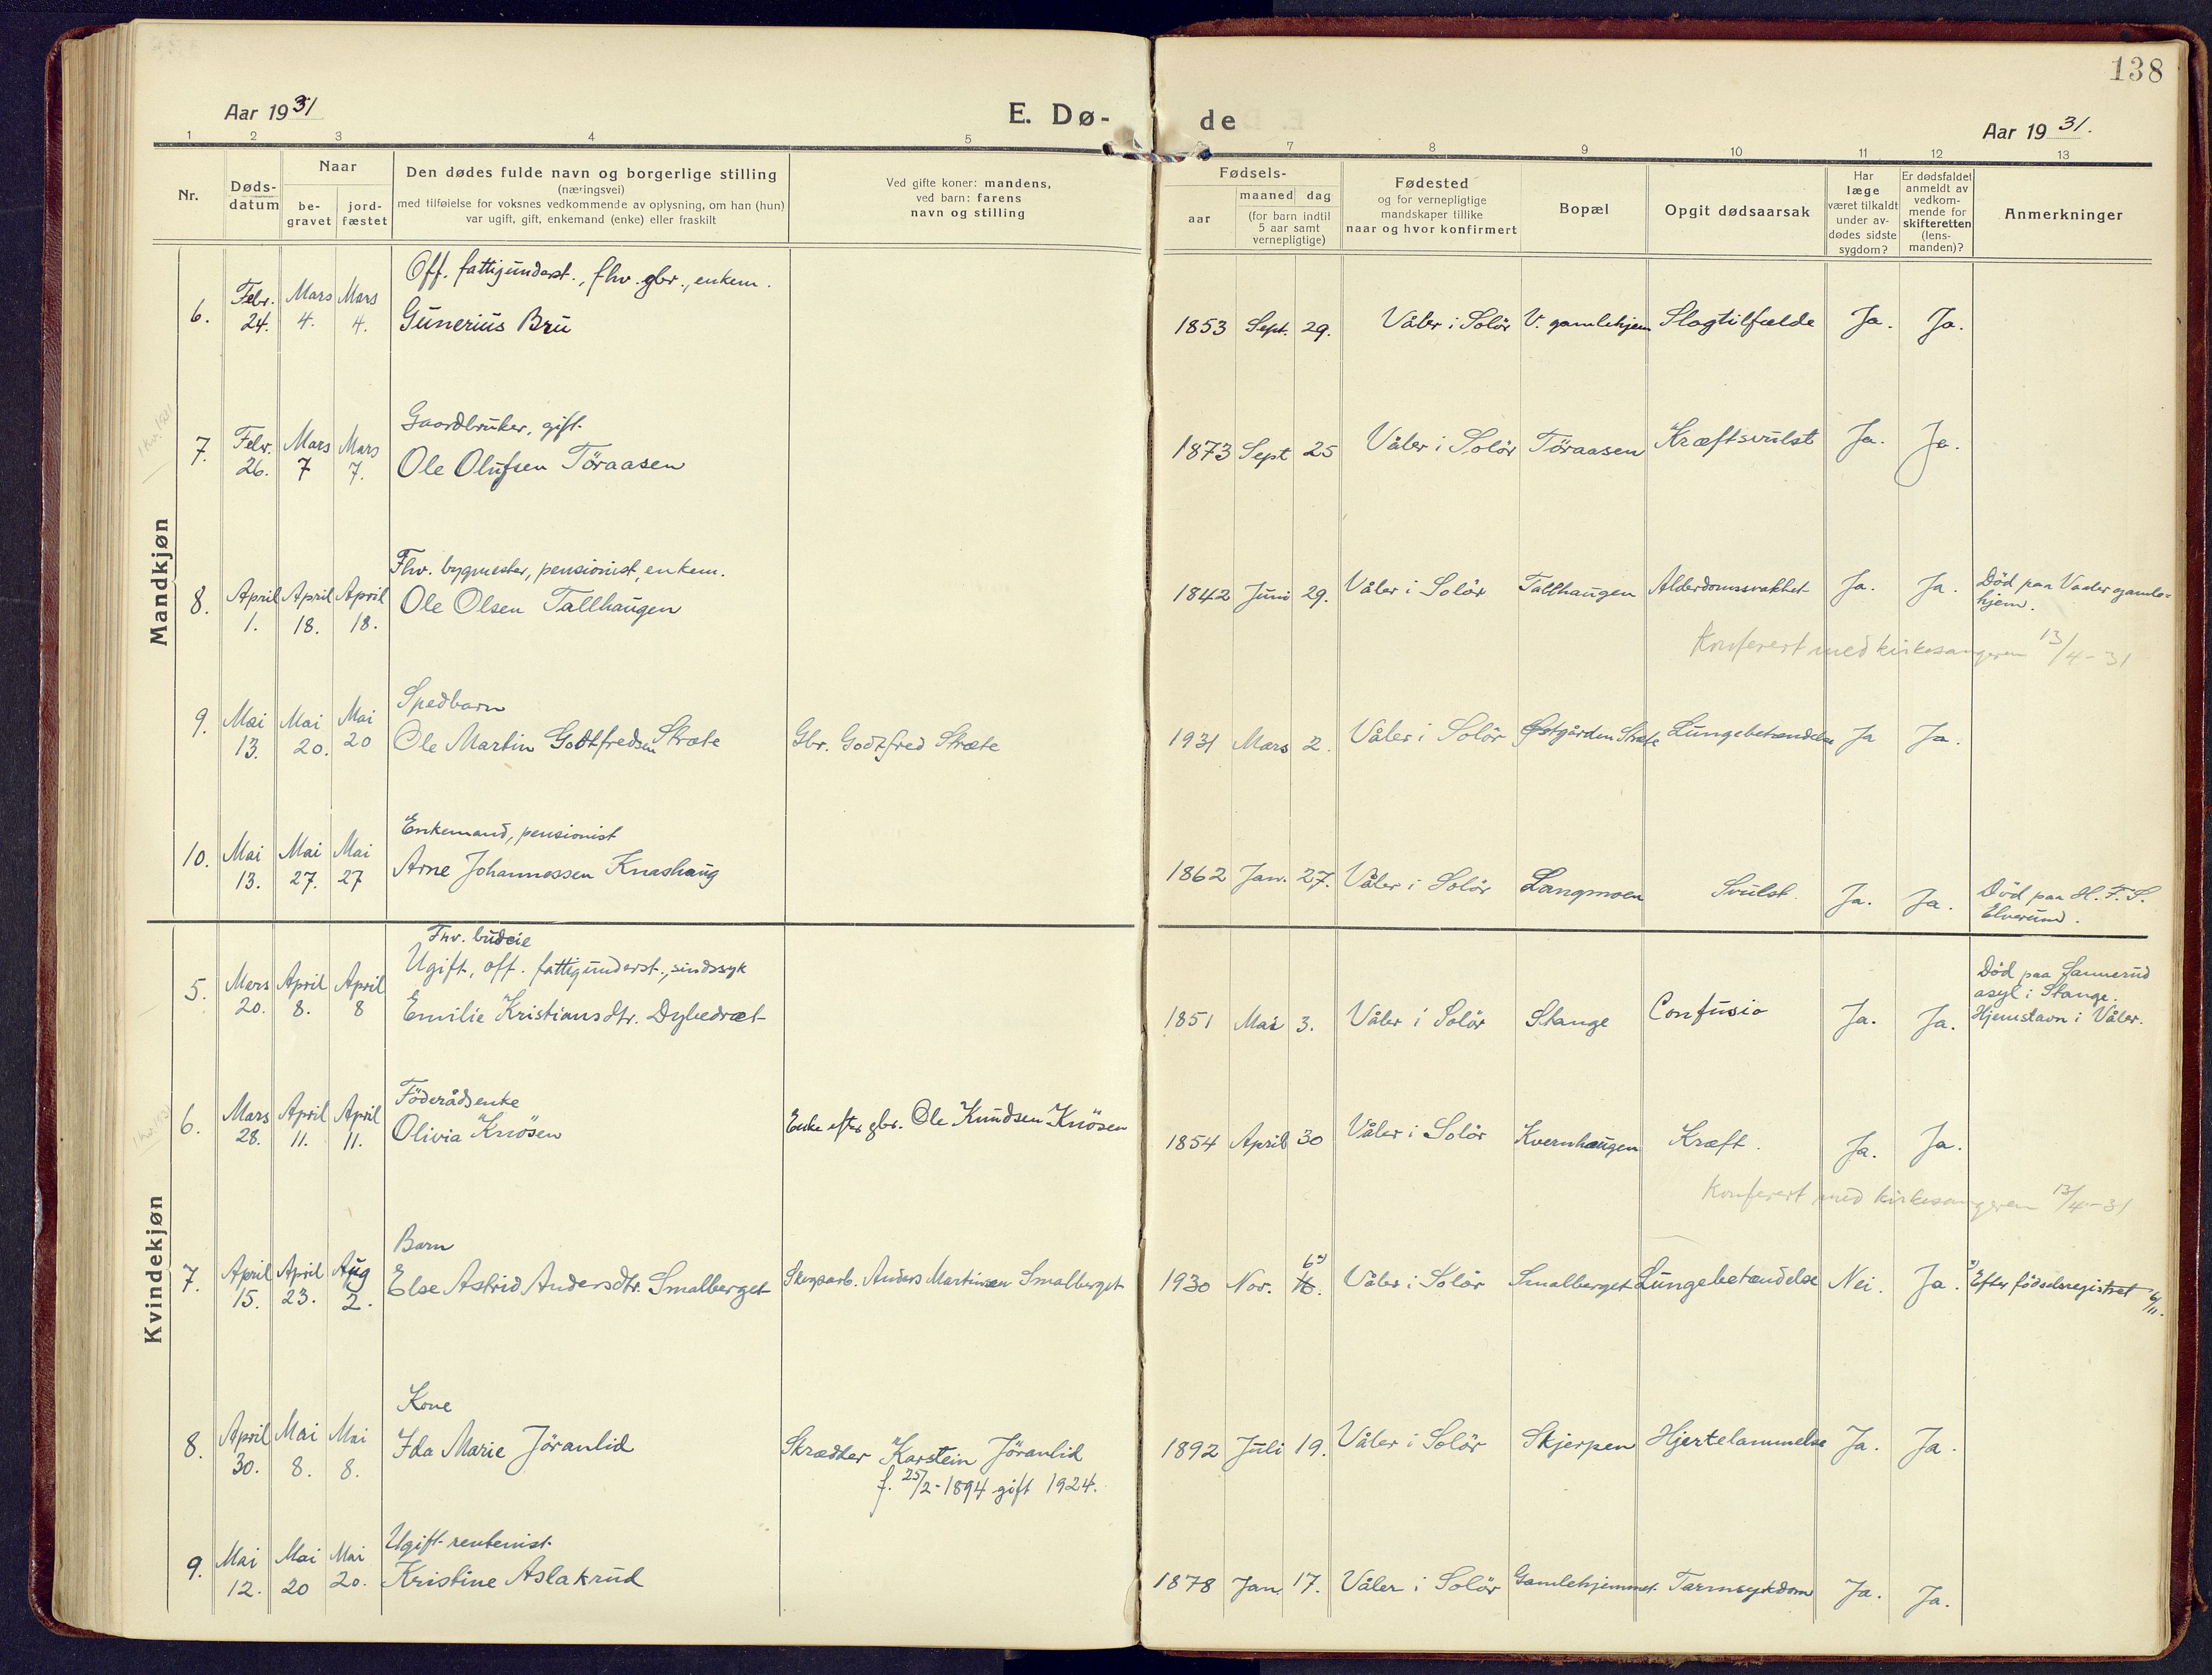 138
Aar 1931
E. Dø-
de
Aar 1931.
1 2 3 4 5 7 8 9 10 11 12 13
Nr.
Døds-
datum
Naar
be-
gravet
jord-
fæstet
Den dødes fulde navn og borgerlige stilling
(næringsvei)
med tilføielse for voksnes vedkommende av oplysning, om han (hun)
var ugift, gift, enkemand (enke) eller fraskilt
Ved gifte koner: mandens,
ved barn: farens
navn og stilling
Fødsels-
aar
maaned dag
(for barn indtil
5 aar samt
vernepligtige)
Fødested
og for vernepligtige
mandskaper tillike
naar og hvor konfirmert
Bopæl
Opgit dødsaarsak
Har
læge
været tilkaldt
under av-
dødes sidste
sygdom?
Er dødsfaldet
anmeldt av
vedkom-
mende for
skifteretten
(lens-
manden)?
Anmerkninger
Mandkjøn
Off. fattigunderst., fhv. gbr., enkem.
6. Febr. 24. Mars 4. Mars 4. Gunerius Bru 1853 Sept. 29. Våler i Solör V. gamlehjem Slagtilfælde Ja. Ja.
1 kv. 1931
Gaardbruker, gift.
7. Febr. 26. Mars 7 Mars 7. Ole Olufsen Töraasen 1873 Sept 25 Våler i Solör Töraasen Kræftsvulst Ja. Ja.
Fhv. bygmester, pensionist, enkem.
8. April 1. April 18. April 18. Ole Olsen Tallhaugen 1842 Juni 29. Våler i Solör Tallhaugen Alderdomssvakhet Ja. Ja. Död paa Vaaler gamle-
hjem.
Konferert med kirkesangeren 13/4-31
Spedbarn
9. Mai 13. Mai 20. Mai 20 Ole Martin Godtfredsen Stræte Gbr. Godtfred Stræte 1931 Mars 2. Våler i Solör Østgården Stræte Lungebetændelse Ja Ja.
Enkemand, pensionist
10. Mai 13. Mai 27. Mai 27 Arne Johannessen Knashaug 1862 Jan. 27. Våler i Solör Langmoen Svulst. Ja. Ja. Död paa H.F.S.
Elverum.
Kvindekjøn
Fhv. budeie
Ugift, off. fattigunderst., sindssyk
5. Mars 20. April 8. April 8 Emilie Kristiansdtr. Dybedræt 1851 Mai 3. Våler i Solör Stange Confusio Ja. Ja. Död paa Sannerud
asyl i Stange.
Hjemstavn i Våler.
1 kv. 1931
Föderådsenke
6. Mars 28. April 11. April 11. Olivia Knösen Enke efter gbr. Ole Knudsen Knösen 1854 April 30 Våler i Solör Kvernhaugen Kræft. Ja. Ja.
Konferert med kirkesangeren 13/4-31
Barn
7. April 15. April 23. Aug 2. Else Astrid Andersdtr. Smalberget Skogsarb. Anders Martinsen Smalberget 1930 Nov. 6 16. Våler i Solör Smalberget Lungebetændelse Nei. Ja. Efter födselsregistret 6/11.
Kone
8. April 30. Mai 8. Mai 8. Ida Marie Jöranlid Skrædder Karstein Jöranlid 1892 Juli 19. Våler i Solör Skjerpen Hjertelammelse Ja. Ja.
f. 25/2-1894 gift 1924.
Ugift rentenist.
9. Mai 12. Mai 20 Mai 20. Kristine Aslakrud 1878 Jan. 17. Våler i Solör Gamlehjemmet. Tarmsykdom Ja. Ja.